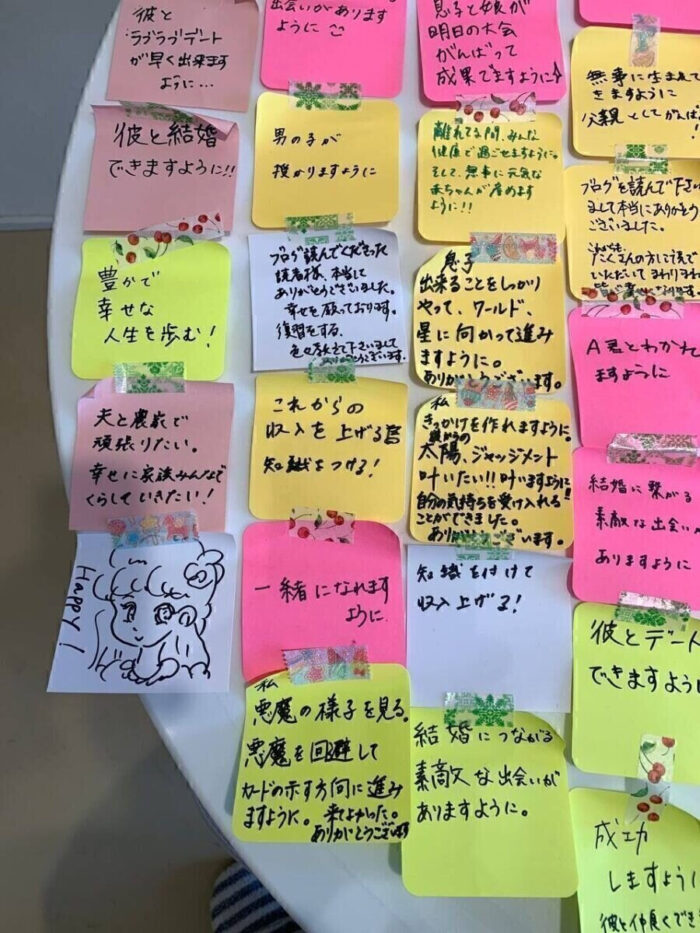 彼と
ラブラブデート
が早く出来ます
ように…
彼と結婚
できますように!!
豊かで
幸せな
人生を歩む!
夫と農家で
頑張りたい。
幸せに家族みんなで
くらしていきたい!
Happy!
出会いがあります
ように
男の子が
授かりますように
ブログ読んでくださった
読者様、本当に
ありがとうございました。
幸せを願っております。
復習をする。
色々教えて下さいまして
ありがとうございます。
これからの
収入を上げる
知識をつける!
一緒になれます
ように
私
悪魔の様子を見る。
悪魔を回避して
カードの示す方向に進み
ますように。来てよかった。
ありがとうございます
息子と娘が
明日の大会
がんばって
成果でますように
離れてる間、みんな
健康で過ごせますように。
そして、無事に元気な
赤ちゃんが産めます
ように!!
息子
出来ることをしっかり
やって、ワールド、
星に向かって進み
ますように。
ありがとうございます。
私
きっかけを作れますように。
太陽、ジャッジメント
叶いたい!!叶いますように!!
自分の気持ちを受け入れる
ことができました。
ありがとうございます。
知識を付けて
収入上げる!
結婚につながる
素敵な出会いが
ありますように。
無事に生まれて
きますように
父親としてがんば
ブログを読んで下さい
まして本当にありがとう
ございました。
これからも、
たくさんの方に読んで
いただいて
A君とわかれ
ますように
結婚に繋がる
素敵な出会い
ありますように
彼とデート
できますよう
成功
しますように
彼と仲良くでき